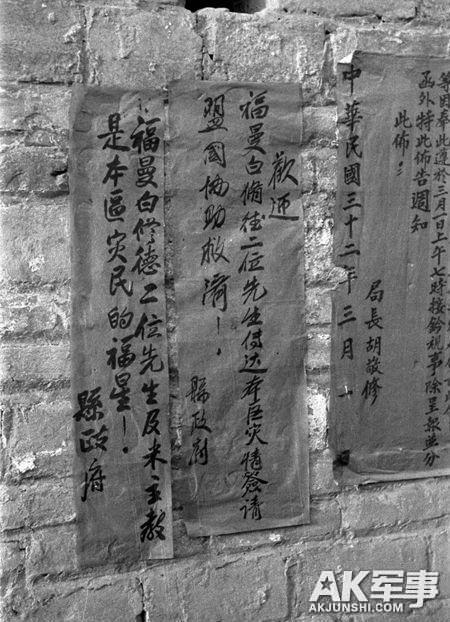 等因奉此遵於三月一日上午七時接鈐視事除呈報並分
函外特此佈告週知
此佈
局長胡敬修
中華民國三十二年三月一日
歡迎
福曼白脩德二位先生傳达本區灾情請
盟國協助救濟！
縣政府
福曼白脩德二位先生及米主教
是本區灾民的福星！
縣政府
AK军事
AKJUNSHI.COM